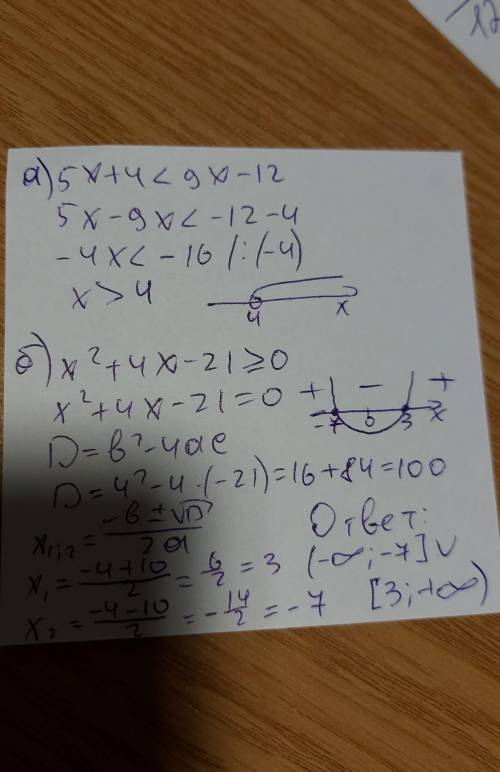 12
а) 5x+4<9x-12
5x-9x<-12-4
-4x<-16 /:(-4)
x>4
4 x
б) x²+4x-21≥0
x²+4x-21=0
+ - +
-7 0 3 x
D=b²-4ac
D=4²-4·(-21)=16+84=100
x₁;₂=(-b±√D)/2a
x₁=(-4+10)/2=6/2=3
x₂=(-4-10)/2=-14/2=-7
Ответ:
(-∞;-7]∪
[3;+∞)